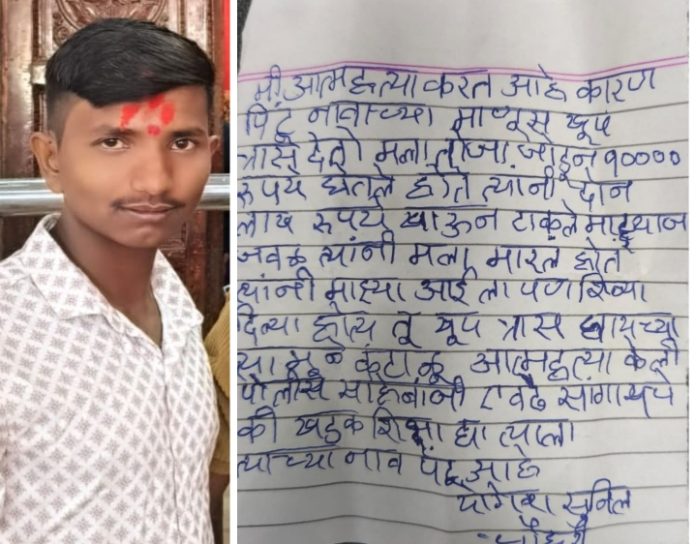 मी आत्महत्या करत आहे कारण
पिंटू नावाच्या माणूस खूप
त्रास देतो मला त्यांजा जोडून १००००
रुपये घेतले होते त्यांनी दोन
लाख रुपये खाऊन टाकले माझ्यान
जवळ त्यांनी मला मारल होत
त्यांनी माझ्या आई ला पण शिव्या
दिल्या होत्य तू खूप त्रास
आत्महत्या केली
पोलीस साहेबांनी एवढे सांगायचे
की खडक शिक्षा द्या त्याला
त्याच्या नाव पिंटू आहे
योगेश सुनिल
चौधरी